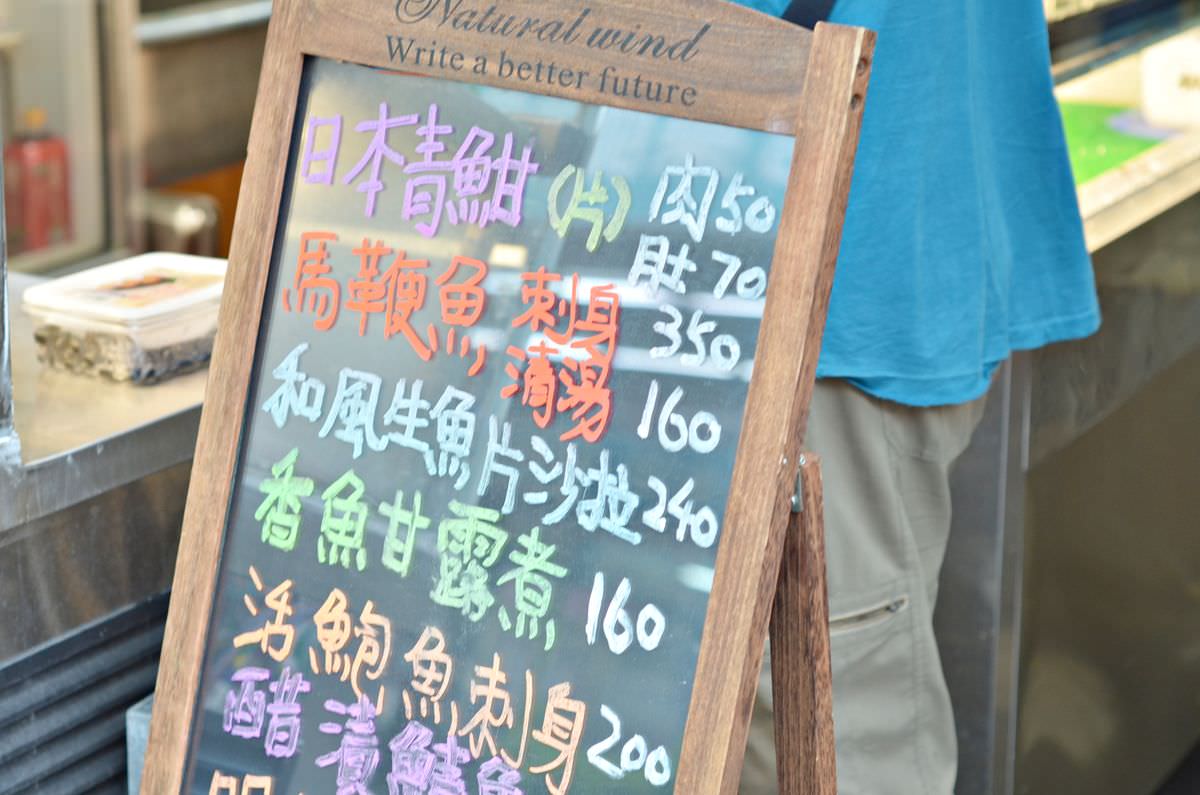 Natural wind
Write a better future
日本青魽(片) 肉50
肚70
馬鞭魚 刺身 350
清湯 160
和風生魚片沙拉 240
香魚甘露煮 160
活鮑魚刺身 200
醋漬鯖魚